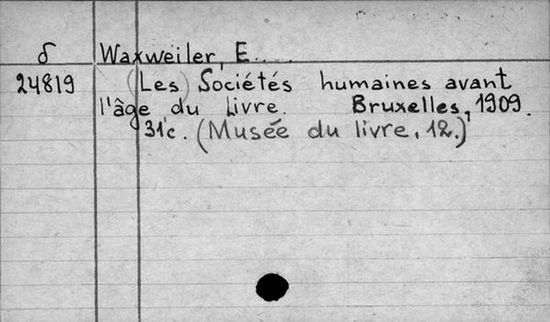 δ Waxweiler, E....
24819 (Les) Sociétés humaines avant
l'âge du livre. Bruxelles, 1909.
31c. (Musée du livre, 12.)